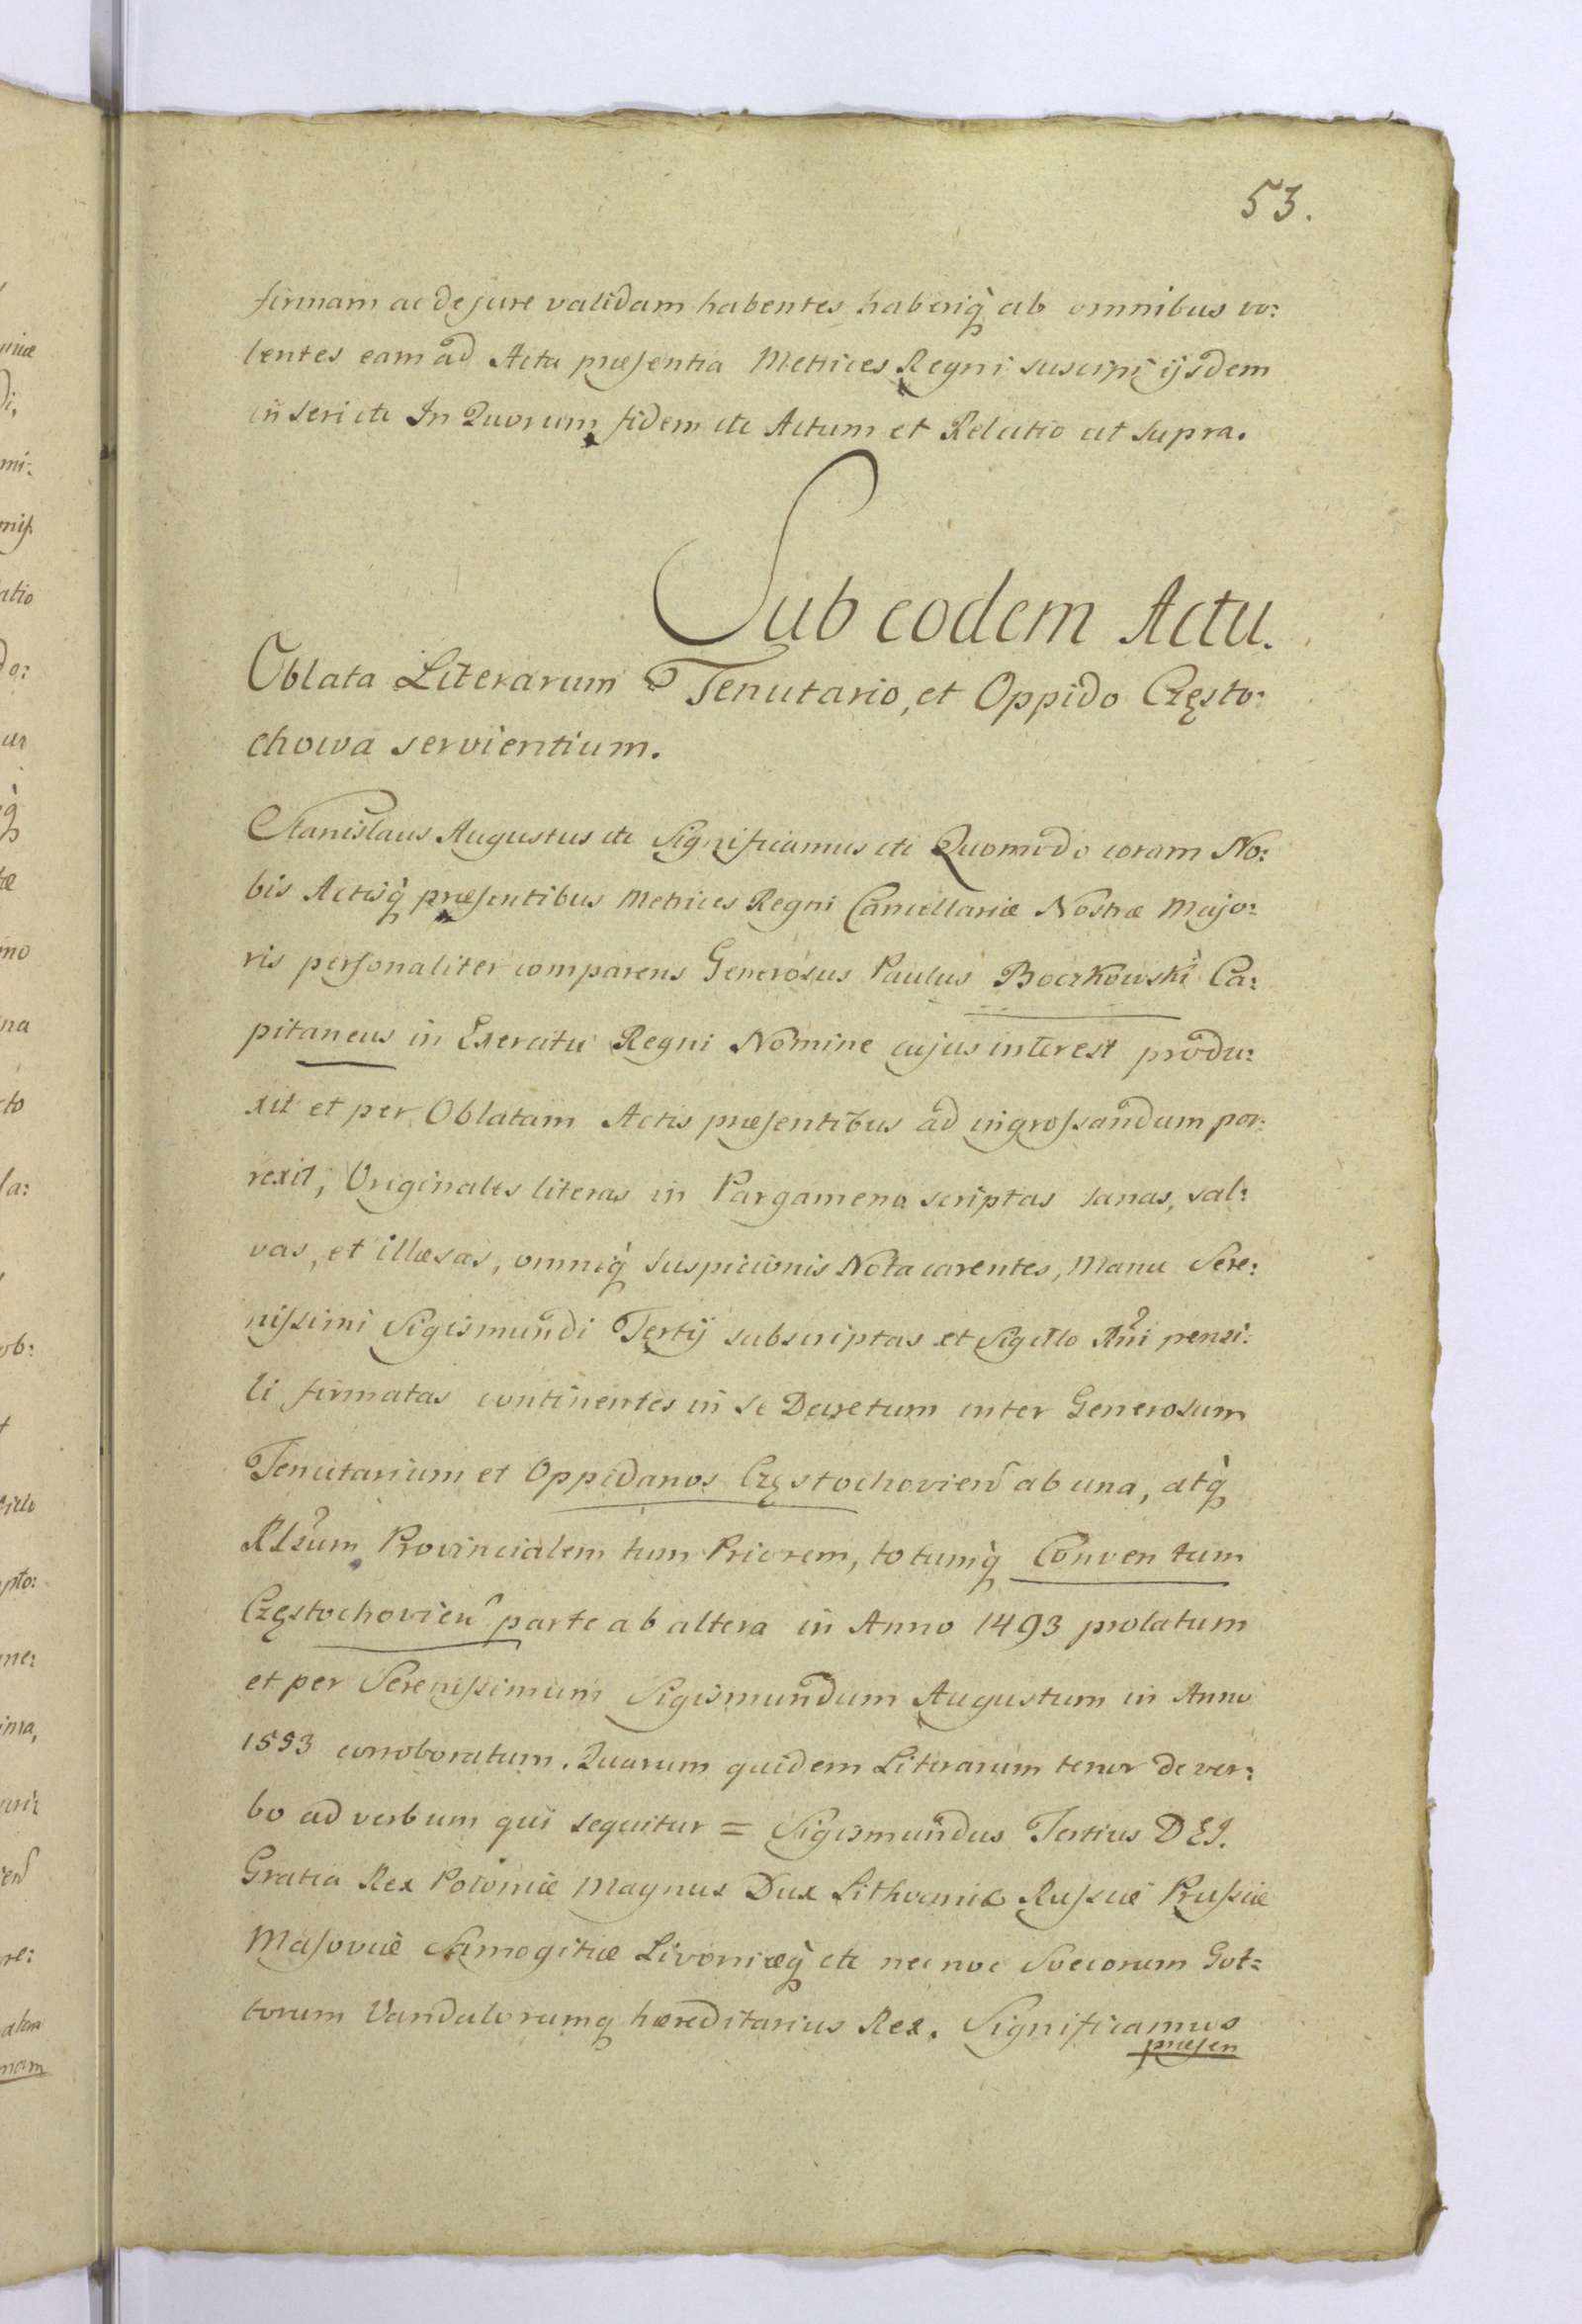 53.
firmam ac de jure validam habentes haberiq̀ ab omnibus vo:
lentes eam ad Acta præsentia Metrices Regni suscipi ijsdem
inseri etc In Quorum fidem etc Actum et Relatio ut supra.
Sub eodem Actu.
Oblata Literarum Tenutario, et Oppido Często:
chowa servientium.
Stanislaus Augustus etc Significamus etc Quomodo coram No:
bis Actisq̀ præsentibus Metrices Regni Cancellariæ Nostræ Majo:
ris personaliter comparens Generosus Paulus Boczkowski Ca:
pitaneus in Exercitu Regni Nomine cujus interest produ:
xit et per Oblatam Actis præsentibus ad ingrossandum por:
rexit, Originales literas in Pargamena scriptas sanas, sal:
vas, et illæsas, omniq̀ suspicionis Nota carentes, Manu Sere:
nissimi Sigismundi Tertij subscriptas et Sigillo Rñi pensi:
li firmatas continentes in se Decretum inter Generosum
Tenutarium et Oppidanos Częstochovien ab una, atq̀
Rlsum Provincialem tum Priorem, totumq̀ Conventum
Częstochovien parte ab altera in Anno 1493 prolatum
et per Serenissimum Sigismundum Augustum in Anno
1553 corroboratum. Quarum quidem Literarum tenor de ver:
bo ad verbum qui sequitur = Sigismundus Tertius DEI.
Gratia Rex Poloniæ Magnus Dux Lithvaniæ Russiæ Prussiæ
Masoviæ Samogitiæ Livoniæq̀ etc nec noc Svecorum Got=
torum Vandalorumq hæreditarius Rex. Significamus
præsen